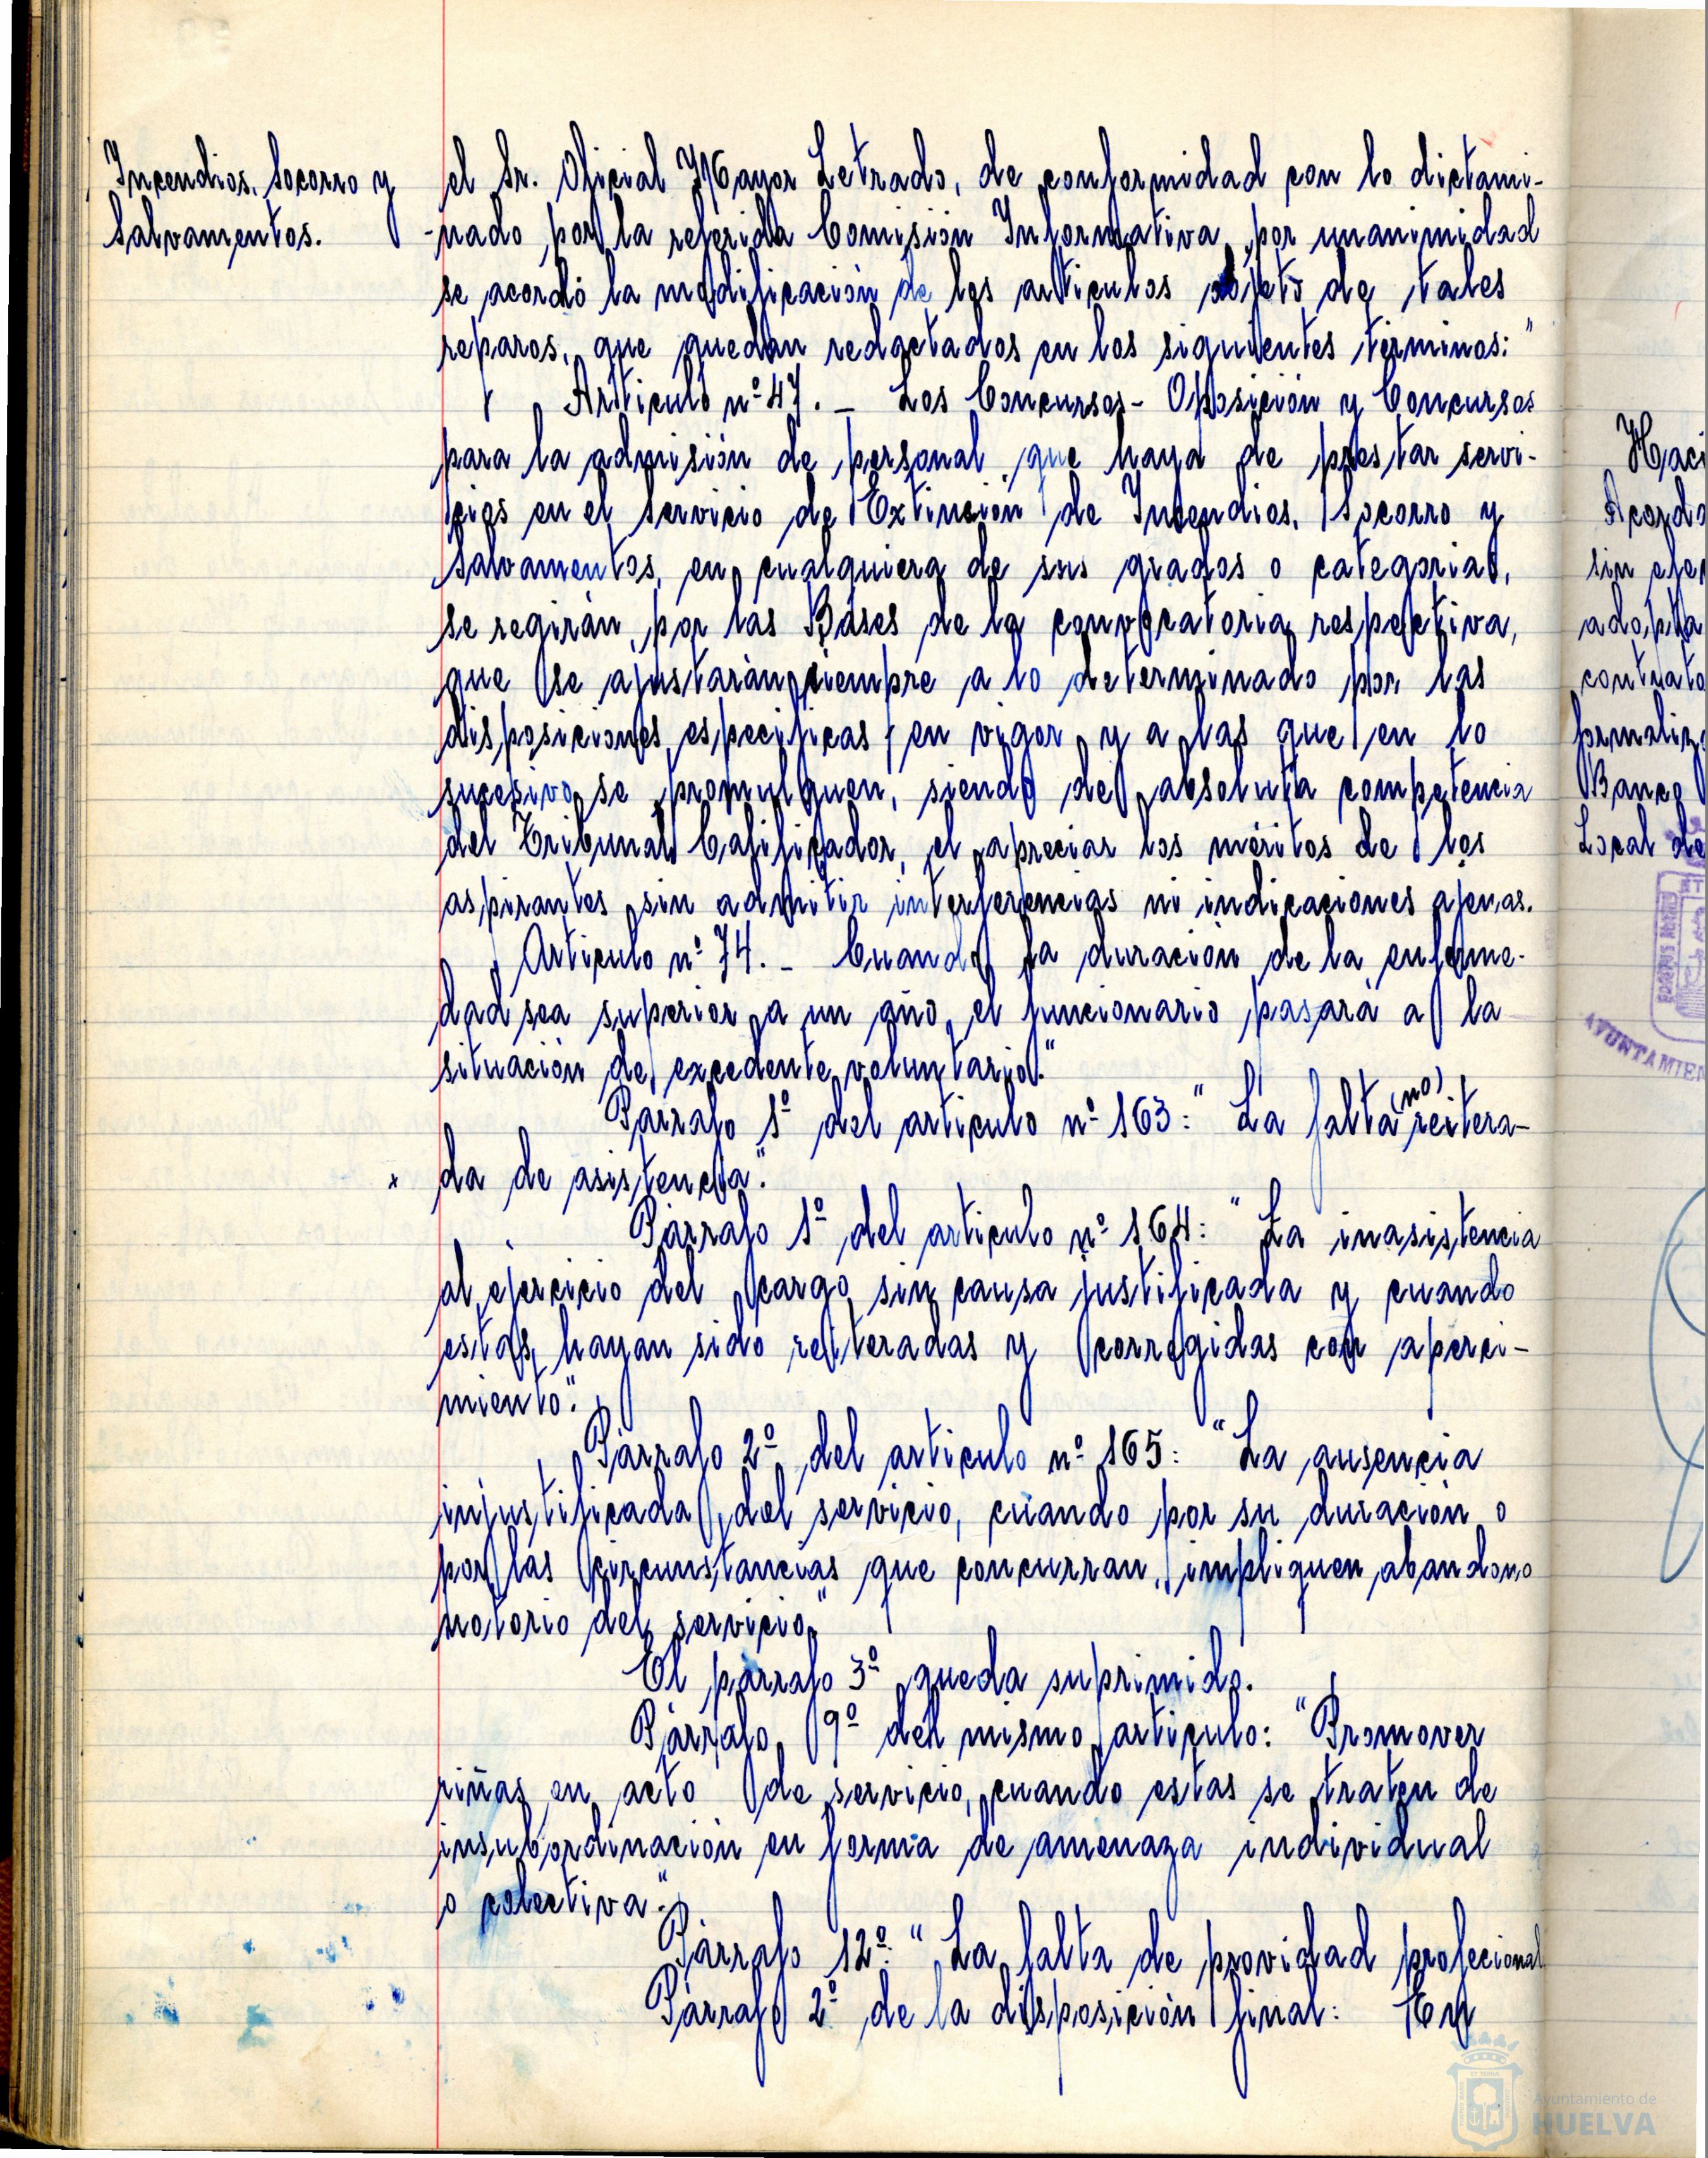 Incendios, Socorro y
Salvamentos.
el Sr. Oficial Mayor Letrado, de conformidad con lo dictami-
-nado por la referida Comisión Informativa, por unanimidad
se acordó la modificación de los artículos objeto de tales
reparos, que quedan redactados en los siguientes términos: "
Artículo nº 47. _ Los Concursos- Oposición y Concursos
para la admisión de personal que haya de prestar servi-
cios en el servicio de Extinción de Incendios, Socorro y
Salvamentos, en cualquiera de sus grados o categorias,
se regirán, por las Bases de la convocatoria respectiva,
que se ajustarán siempre a lo determinado por las
disposiciones especificas en vigor y a las que en lo
sucesivo se promulguen, siendo de absoluta competencia
del Tribunal Calificador, el apreciar los méritos de los
aspirantes sin admitir interferencias ni indicaciones ajenas.
Artículo nº 74. _ Cuando la duración de la enferme-
dad sea superior a un año, el funcionario pasará a la
situación de excedente voluntario."
Párrafo 1º del artículo nº 163: "La falta (no) reitera-
da de asistencia".
x
Párrafo 1º del artículo nº 164: "La inasistencia
al ejercicio del cargo sin causa justificada y cuando
estas hayan sido reiteradas y corregidas con aperci-
miento".
Párrafo 2º del artículo nº 165: "La ausencia
injustificada del servicio, cuando por su duración o
por las circunstancias que concurran, impliquen abandono
notorio del servicio"
El párrafo 3º queda suprimido.
Párrafo 9º del mismo artículo: "Promover
riñas en acto de servicio, cuando estas se traten de
insubordinación en forma de amenaza individual
o colectiva".
Párrafo 12º: "La falta de providad profecional
Párrafo 2º de la disposición final: En
Haci
Acordo
sin efe
adopta
contrato
formaliz
Banco
Local de
AYUNTAMIEN
Ayuntamiento de
HUELVA